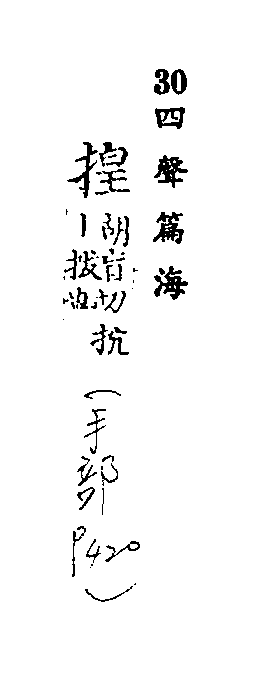 30四聲篇海
揘
胡盲切
丨也
抗
(手部
P420)